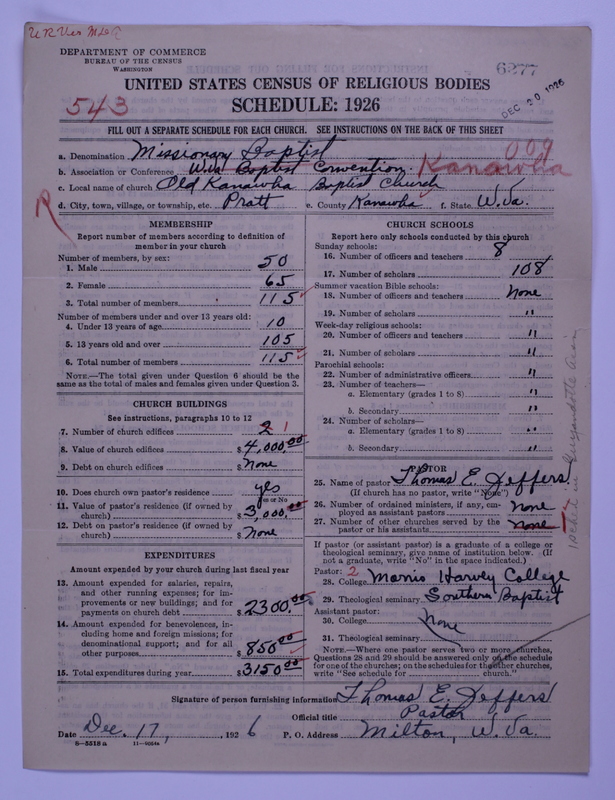 DEPARTMENT OF COMMERCE
BUREAU OF THE CENSUS
WASHINGTON
6277
DEC 20 1926
UNITED STATES CENSUS OF RELIGIOUS BODIES
543
SCHEDULE: 1926
FILL OUT A SEPARATE SCHEDULE FOR EACH CHURCH. SEE INSTRUCTIONS ON THE BACK OF THIS SHEET
009
a. Denomination Missionary Baptist
b. Association or Conference W.Va Baptist Convention Kanawha
c. Local name of church Old Kanawha Baptist Church
d. City, town, village, or township, etc. Pratt e. County Kanawha f. State W.Va.
R
MEMBERSHIP
Report number of members according to definition of member in your church
Number of members, by sex:
1. Male 50
2. Female 65
3. Total number of members 115
Number of members under and over 13 years old:
4. Under 13 years of age 10
5. 13 years old and over 105
6. Total number of members 115
NOTE.—The total given under Question 6 should be the same as the total of males and females given under Question 3.
CHURCH BUILDINGS
See instructions, paragraphs 10 to 12
7. Number of church edifices 2 1
8. Value of church edifices $4,000.00
9. Debt on church edifices $None
10. Does church own pastor's residence yes
Yes or No
11. Value of pastor's residence (if owned by church) $3,000.00
12. Debt on pastor's residence (if owned by church) $None
EXPENDITURES
Amount expended by church during last fiscal year
13. Amount expended for salaries, repairs, and other running expenses; for improvements or new buildings; and for payments on church debt $2300.00
14. Amount expended for benevolences, including home and foreign missions; for denominational support; and for all other purposes $850.00
15. Total expenditures during year $3150.00
CHURCH SCHOOLS
Report here only schools conducted by this church
Sunday schools:
16. Number of officers and teachers 8
17. Number of scholars 108
Summer vacation Bible schools:
18. Number of officers and teachers None
19. Number of scholars "
Week-day religious schools:
20. Number of officers and teachers "
21. Number of scholars "
Parochial schools:
22. Number of administrative officers "
23. Number of teachers—
a. Elementary (grades 1 to 8) "
b. Secondary "
24. Number of scholars—
a. Elementary (grades 1 to 8) "
b. Secondary "
PASTOR
25. Name of pastor Thomas E. Jeffers
(If church has no pastor, write "None")
26. Number of ordained ministers, if any, employed as assistant pastors None
27. Number of other churches served by the pastor or his assistants None 1
If pastor (or assistant pastor) is a graduate of a college or theological seminary, give name of institution below. (If not a graduate, write "No" in the space indicated.)
Pastor: 2
28. College Morris Harvey College
29. Theological seminary Southern Baptist
Assistant pastor:
30. College None
31. Theological seminary
NOTE.—Where one pastor serves two or more churches, Questions 28 and 29 should be answered only on the schedule for one of the churches; on the schedules for the other churches, write "See schedule for church."
Signature of person furnishing information Thomas E. Jeffers
Official title Pastor
Date Dec. 17, 1926 P. O. Address Milton, W.Va.
8—5518 a